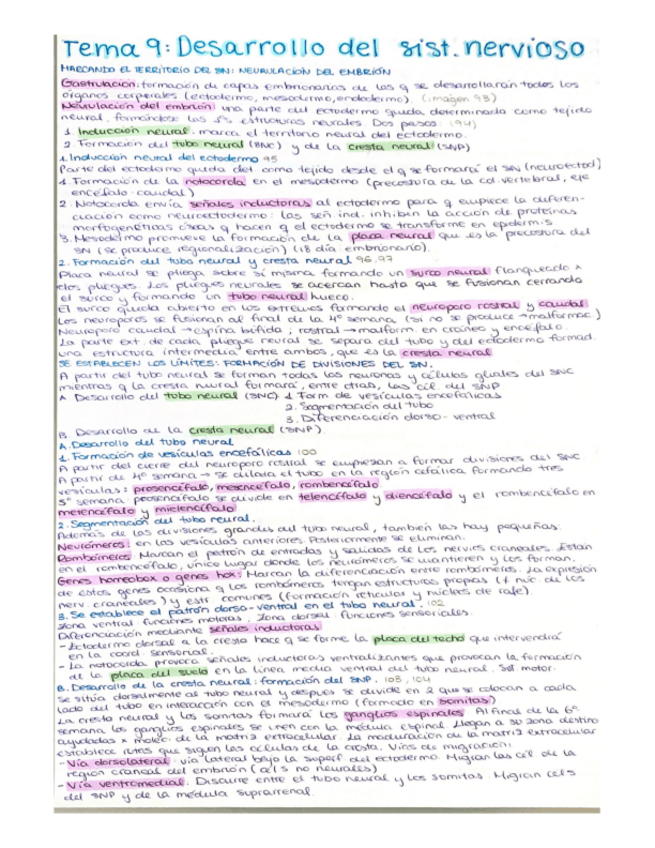 Tema 9: Desarrollo del sist. nervioso
MARCANDO EL TERRITORIO DEL SN: NEURULACIÓN DEL EMBRIÓN
Gastrulación: formación de capas embrionarias de las q se desarrollarán todos los
órganos corporales (ectodermo, mesodermo, endodermo). (imagen 93)
Neurulación del embrión: una parte del ectodermo queda determinada como tejido
neural, formándose las 1ªs estructuras neurales. Dos pasos: (94)
1. Inducción neural: marca el territorio neural del ectodermo.
2. Formación del tubo neural (SNC) y de la cresta neural (SNP)
1. Inducción neural del ectodermo 95
Parte del ectodermo queda det como tejido desde el q se formará el SN (neuroectod)
1. Formación de la notocorda en el mesodermo (precursora de la col. vertebral, eje
encéfalo-caudal)
2. Notocorda envía señales inductoras al ectodermo para q empiece la diferen-
ciación como neuroectodermo: las señ ind. inhiben la acción de proteínas
morfogenéticas óseas q hacen q el ectodermo se transforme en epidermis
3. Mesodermo promueve la formación de la placa neural que es la precursora del
SN (se produce regionalización) (18 día embrionario).
2. Formación del tubo neural y cresta neural 96, 97
Placa neural se pliega sobre sí misma formando un surco neural flanqueado x
dos pliegues. Los pliegues neurales se acercan hasta que se fusionan cerrando
el surco y formando un tubo neural hueco.
El surco queda abierto en los extremos formando el neuroporo rostral y caudal
Los neuroporos se fusionan al final de la 4ª semana (si no se produce → malformac)
Neuroporo caudal → espina bífida; rostral → malform. en cráneo y encéfalo.
La parte ext. de cada pliegue neural se separa del tubo y del ectodermo formand.
una estructura intermedia entre ambos, que es la cresta neural
SE ESTABLECEN LOS LÍMITES: FORMACIÓN DE DIVISIONES DEL SN.
A partir del tubo neural se forman todas las neuronas y células gliales del SNC
mientras q la cresta neural formará, entre otras, las cél. del SNP
A. Desarrollo del tubo neural (SNC) 1. Form de vesículas encefálicas
2. Segmentación del tubo
3. Diferenciación dorso-ventral
B. Desarrollo de la cresta neural (SNP).
A. Desarrollo del tubo neural
1. Formación de vesículas encefálicas 100
A partir del cierre del neuroporo rostral se empiezan a formar divisiones del SNC
A partir de 4ª semana → se dilata el tubo en la región cefálica formando tres
vesículas: prosencéfalo, mesencéfalo, rombencéfalo.
5ª semana prosencéfalo se divide en telencéfalo y diencéfalo y el rombencéfalo en
metencéfalo y mielencéfalo
2. Segmentación del tubo neural.
Además de las divisiones grandes del tubo neural, también las hay pequeñas:
Neurómeros: en las vesículas anteriores. Posteriormente se eliminan.
Rombómeros: Marcan el patrón de entradas y salidas de los nervios craneales. Están
en el rombencéfalo, único lugar donde los neurómeros se mantienen y los forman.
Genes homeobox o genes hox: Marcan la diferenciación entre rombómeros. La expresión
de estos genes ocasiona q los rombómeros tengan estructuras propias (1 núc. de los
nerv. craneales) y estr comunes (formación reticular y núcleos de rafe).
3. Se establece el patrón dorso-ventral en el tubo neural. 102
Zona ventral: funciones motoras. Zona dorsal: funciones sensoriales.
Diferenciación mediante señales inductoras
- Ectodermo dorsal a la cresta hace q se forme la placa del techo que intervendrá
en la coord. sensorial.
- La notocorda provoca señales inductoras ventralizantes que provocan la formación
de la placa del suelo en la línea media ventral del tubo neural. Sist motor.
B. Desarrollo de la cresta neural: formación del SNP. 103, 104
Se sitúa dorsalmente al tubo neural y después se divide en 2 que se colocan a cada
lado del tubo en interacción con el mesodermo (formado en somitas)
La cresta neural y los somitas formará los ganglios espinales. Al final de la 6ª
semana los ganglios espinales se unen con la médula espinal. Llegan a su zona destino
ayudadas x moléc. de la matriz extracelular. La maduración de la matriz extracelular
establece rutas que siguen las células de la cresta. Vías de migración:
- Vía dorsolateral: vía lateral bajo la superf del ectodermo. Migran las cél de la
región craneal del embrión (cél s no neurales)
- Vía ventromedial: Discurre entre el tubo neural y los somitas. Migran cels
del SNP y de la médula suprarrenal.